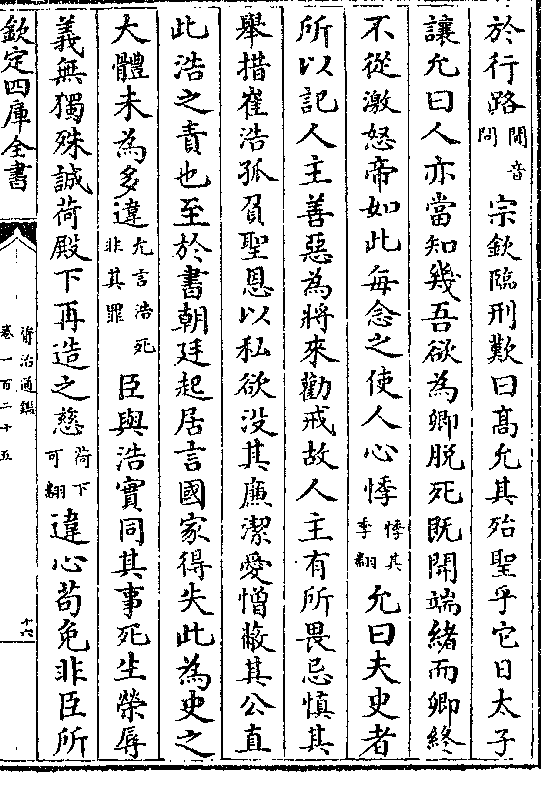 於行路聞音問宗欽臨刑歎曰髙允其殆聖乎它日太子
讓允曰人亦當知幾吾欲為卿脫死既開端緒而卿終
不從激怒帝如此每念之使人心悸悸其季翻允曰夫史者
所以記人主善惡為將來勸戒故人主有所畏忌慎其
舉措崔浩孤負聖恩以私欲没其廉潔愛憎蔽其公直
此浩之責也至於書朝廷起居言國家得失此為史之
大體未為多違允言浩死非其罪臣與浩實同其事死生榮辱
義無獨殊誠荷殿下再造之慈荷下可翻違心茍免非臣所
欽定四庫全書
資治通鑑
卷一百二十五
十六